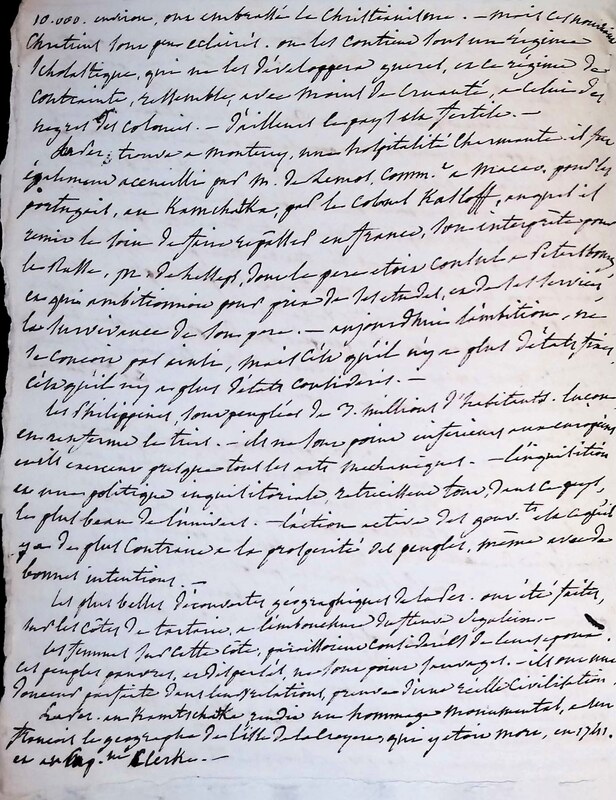 10.000 environ, ont embrassé le Christianisme. — mais ces nouveaux
Chretiens sont peu eclairés. on les contient sous un regime
scholastique, qui ne les développera gueres, et ce régime de
contrainte, ressemble, avec moins de cruauté, a celui des
negres des colonies. — d'ailleurs le pays est fertile. —
trouve a monterey, une hospitalité Charmante. il fut
également accueilli par m. de Lemos, Comm. a macao, pour les
portugais, au Kamchatka, par le Colonel Kasloff, auquel il
remit le soin de faire en france, son interprète pour
le Russe, de Lesseps, dont le pere etoit Consul a Petersbourg
et qui ambitionnoit pour prix de ses etudes, et de ses services,
la survivance de son pere. — aujourd'hui l'ambition, ne
se concoit pas ainsi, mais c'est qu'il n'y a plus d'états fixes,
c'est qu'il n'y a plus d'états considérés. —
les Philippines, sont peuplées de 3. millions d'habitants. lucon
en renferme le tiers. — ils ne sont point inferieurs aux européens
et ils exercent presque tous les arts mechaniques. — l'inquisition
et une politique inquisitoriale retrecissent tout, dans ce pays,
le plus beau de l'univers. — l'action active des gouv.ts est ce qu'il
y a de plus contraire a la prosperité des peuples, même avec de
bonnes intentions. —
Les plus belles découvertes géographiques de la Per. ont été faites,
sur les côtes de tartarie, a l'embouchure du fleuve Segalien. —
les femmes sur cette côte, considérées de leurs epoux
ces peuples pauvres, et dispersés, ne sont point sauvages. — ils ont une
douceur parfaite dans leurs relations, preuve d'une réelle civilisation.
au Kamtschatka, rendit un hommage monumental, a un
francois le geographe de l'isle de la Croyere, qui y etoit mort, en 1741.
et au Cap.ne Clerke. —